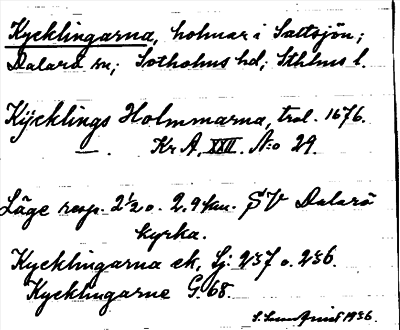 Kycklingarna, holmar i Saltsjön;
Dalarö sn; Sotholms hd; Sthlms l.
Kÿcklings Holmmarna, trol. 1676.
— . Kr A, XXIII. N:o 29.
Läge resp. 2 1/2 o. 2.9 km. SV Dalarö
kyrka.
Kycklingarna ek, Sj: 257 o. 256.
Kycklingarne G. 68.
1936.